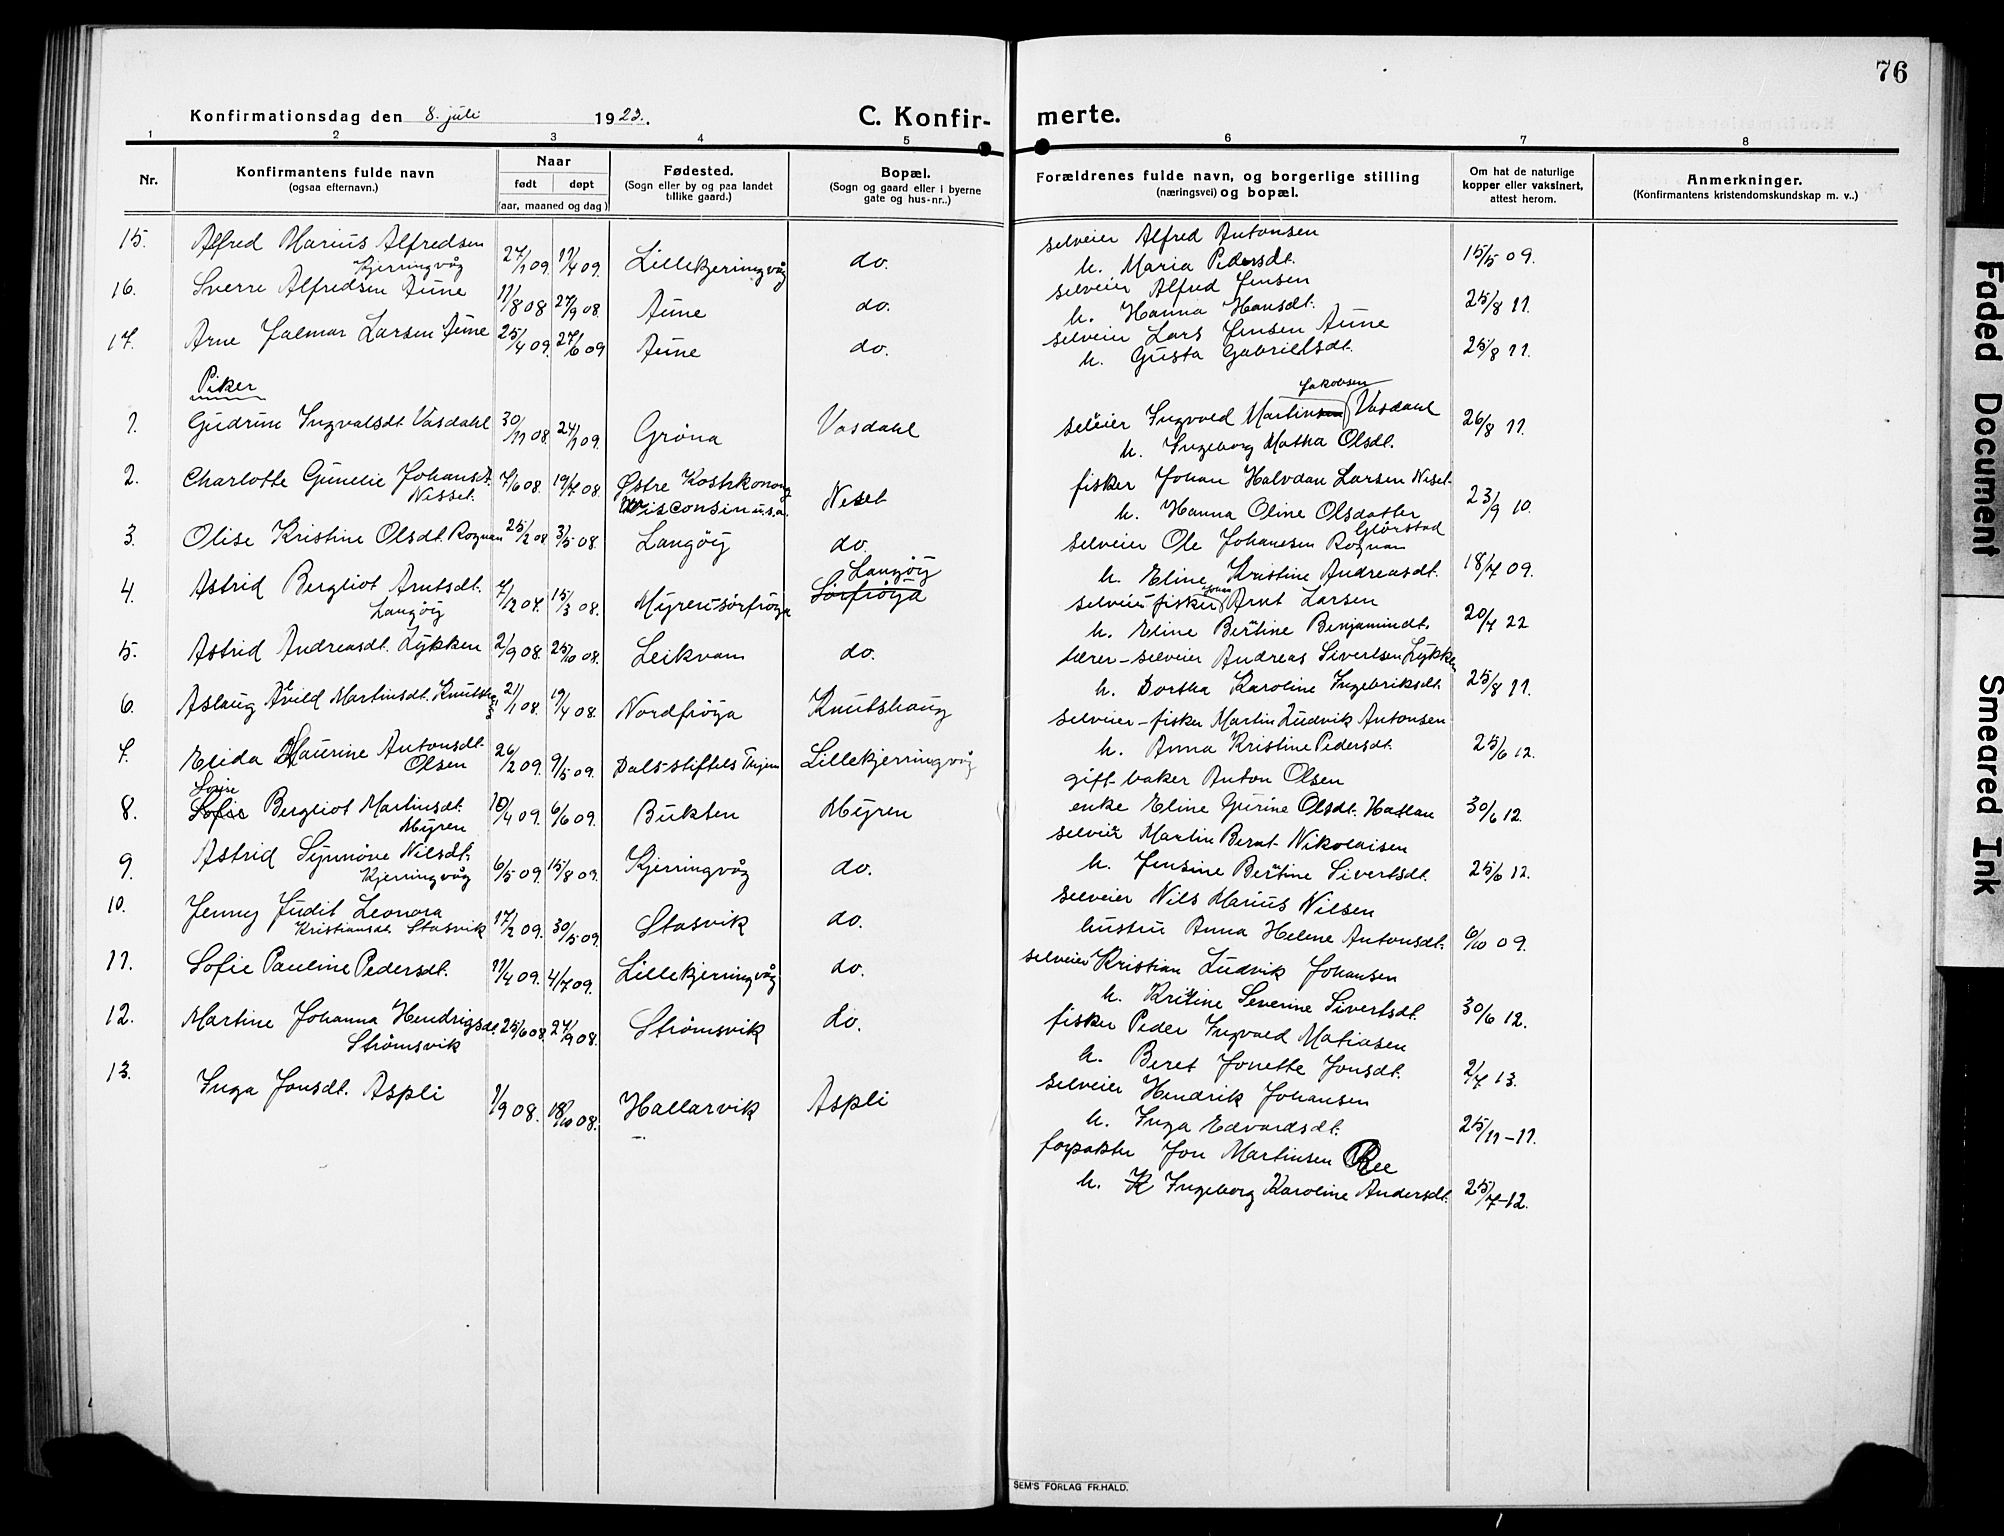 76
Konfirmationsdag den 8. juli 1923.
C. Konfir-
merte.
1 2 3 4 5 6 7 8
Nr.
Konfirmantens fulde navn
(ogsaa efternavn.)
Naar
født døpt
(aar, maaned og dag)
Fødested.
(Sogn eller by og paa landet
tillike gaard.)
Bopæl.
(Sogn og gaard eller i byerne
gate og hus-nr..)
Forældrenes fulde navn, og borgerlige stilling
(næringsvei) og bopæl.
Om hat de naturlige
kopper eller vaksinert,
attest herom.
Anmerkninger.
(Konfirmantens kristendomskundskap m. v..)
15. Alfred Marius Alfredsen
Kjerringvåg 27/1 09. 11/4 09. Lillekjerringvåg do.
selveier Alfred Antonsen
h. Maria Pedersdt. 15/5 09.
16. Sverre Alfredsen Aune 11/8 08 27/9 08. Aune do.
selveier Alfred Jensen
h. Hanna Hansdt. 25/8 11.
17. Arne Jalmar Larsen Aune 25/4 09. 27/6 09 Aune do.
selveier Lars Jensen Aune
h. Gusta Gabrielsdt. 25/8 11.
Piker
1. Gudrun Ingvalsdt. Vasdahl 30/11 08 24/1 09. Grøna Vasdahl
Jakobsen
selveier Ingvald Martinsen Vasdahl
h. Ingeborg Matha Olsdt. 26/8 11.
2. Charlotte Gunelie Johansdt.
Nesset. 7/6 08. 19/7 08. Østre Koshkonong
Wisconsin u.s.a. Neset
fisker Johan Halvdan Larsen Neset
h. Hanna Oline Olsdatter 23/9 10.
3. Olise Kristine Olsdt. Rognan 25/2 08 3/5 08. Langöy do.
Glörstad
selveier Ole Johansen Rognan
h. Eline Kristine Andreasdt. 18/7 09.
4. Astrid Bergliot Arntsdt.
Langöy 7/12 07. 15/3 08. Myren sörfröya Langöy
Sörfröya
selveier fisker Arnt Larsen
h. Eline Bertine Benjamindt. 20/4 22
5. Astrid Andreasdt. Lykken 2/9 08. 25/10 08. Leikvam do.
lærer-selveier Andreas Sivertsen Lykken
h. Dortha Karoline Ingebriksdt. 25/8 11.
6. Aslaug Alvild Martinsdt. Knutshaug 21/1 08. 19/4 08. Nordfröya Knutshaug
selveier-fisker Martin Ludvik Antonsen
h. Anna Kristine Pedersdt. 25/6 12.
7. Elida Maurine Antonsdt.
Olsen 26/2 09. 9/5 09. Dalsstiftels Tr.hjem Lillekjerringvåg
gift-baker Anton Olsen
enke Eline Gurine Olsdt. Hattan 30/6 12.
Lovise
8. Sofie Bergliot Martinsdt.
Myren 10/4 09. 6/6 09. Bukten Myren
selveier Martin Bernt Nikolaisen
h. Jensine Bertine Sivertsdt. 25/6 12.
9. Astrid Synnöve Nilsdt.
Kjerringvåg 6/5 09. 15/8 09. Kjerringvåg do.
selveier Nils Marius Nilsen
hustru Anna Helene Antonsdt. 6/10 09.
10. Jenny Judit Leonora
Kristiansdt. Stasvik 17/2 09. 30/5 09. Stasvik do.
selveier Kristian Ludvik Johansen
h. Kristine Severine Sivertsdt. 30/6 12.
11. Sofie Pauline Pedersdt. 11/4 09. 4/7 09. Lillekjerringvåg do.
fisker Peder Ingvald Matiasen
h. Beret Jonette Jonsdt. 2/7 13.
12. Martine Johanna Hendrigsdt.
Strømsvik 25/6 08. 27/9 08. Strømsvik do.
selveier Hendrik Johansen
h. Inga Edvardsdt. 25/11-11.
13. Inga Jonsdt. Aspli 1/9 08. 18/10 08. Hallarvik Aspli
forpakter Jon Martinsen Ree
h. K Ingeborg Karoline Andersdt. 25/7-12.
SEM'S FORLAG FR.HALD.
Faded Document
Smeared Ink